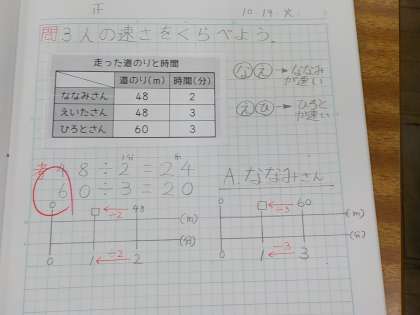 正
10.19.火.
問 3人の速さをくらべよう。
走った道のりと時間
道のり(m) 時間(分)
ななみさん 48 2
えいたさん 48 3
ひろとさん 60 3
な え → ななみが速い
え ひ → ひろとが速い
考 48÷2=24
60÷3=20
A. ななみさん
0 □ ÷2 48 (m)
(分)
0 1 ÷2 2
0 □ ÷3 60 (m)
(分)
0 1 ÷3 3